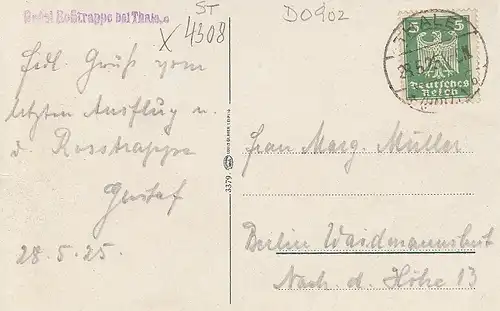 Hotel Roßtrappe bei Thale
ST
X 4308
DO902
THALE
5 5
Deutsches
Reich
Fidl. Gruß vom
letzten Ausflug n.
d. Rosstrappe
Gustaf
28.5.25.
3379
Frau Marg. Müller
Berlin Waidmannslust
Nach. d. Höhe 13